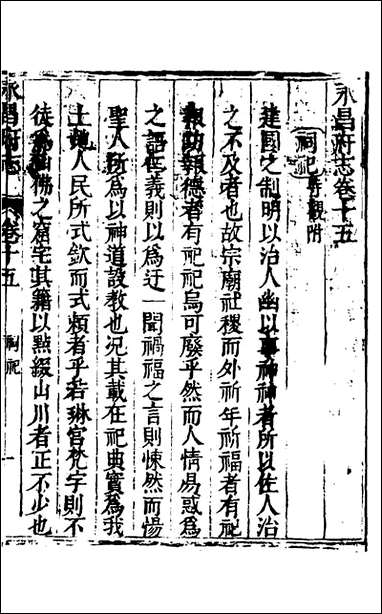 永昌府志卷十五
祠祀 寺觀附
建國之制明以治人幽以事神神者所以佐人治
之不及者也故宗廟社稷而外祈年祈福者有祀
報功報德者有祀祀烏可廢乎然而人情易惑爲
之語仁義則以爲迂一聞禍福之言則悚然而惕
聖人所爲以神道設教也况其載在祀典實爲我
土地人民所式欽而式賴者乎若琳宮梵宇則不
徒爲仙佛之窟宅其籍以㸃綴山川者正不少也
永昌府志
卷十五
祠祀
一